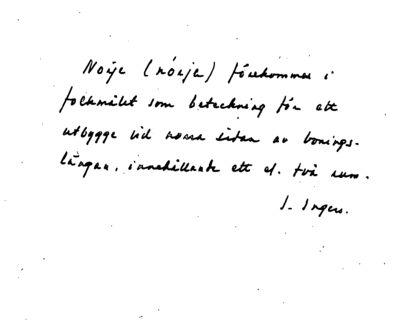 Noije (nóije) förekommer i
folkmålet som beteckning för ett
utbygge vid norra sidan av bonings-
längan, innehållande ett el. två rum.
I. Ingers.